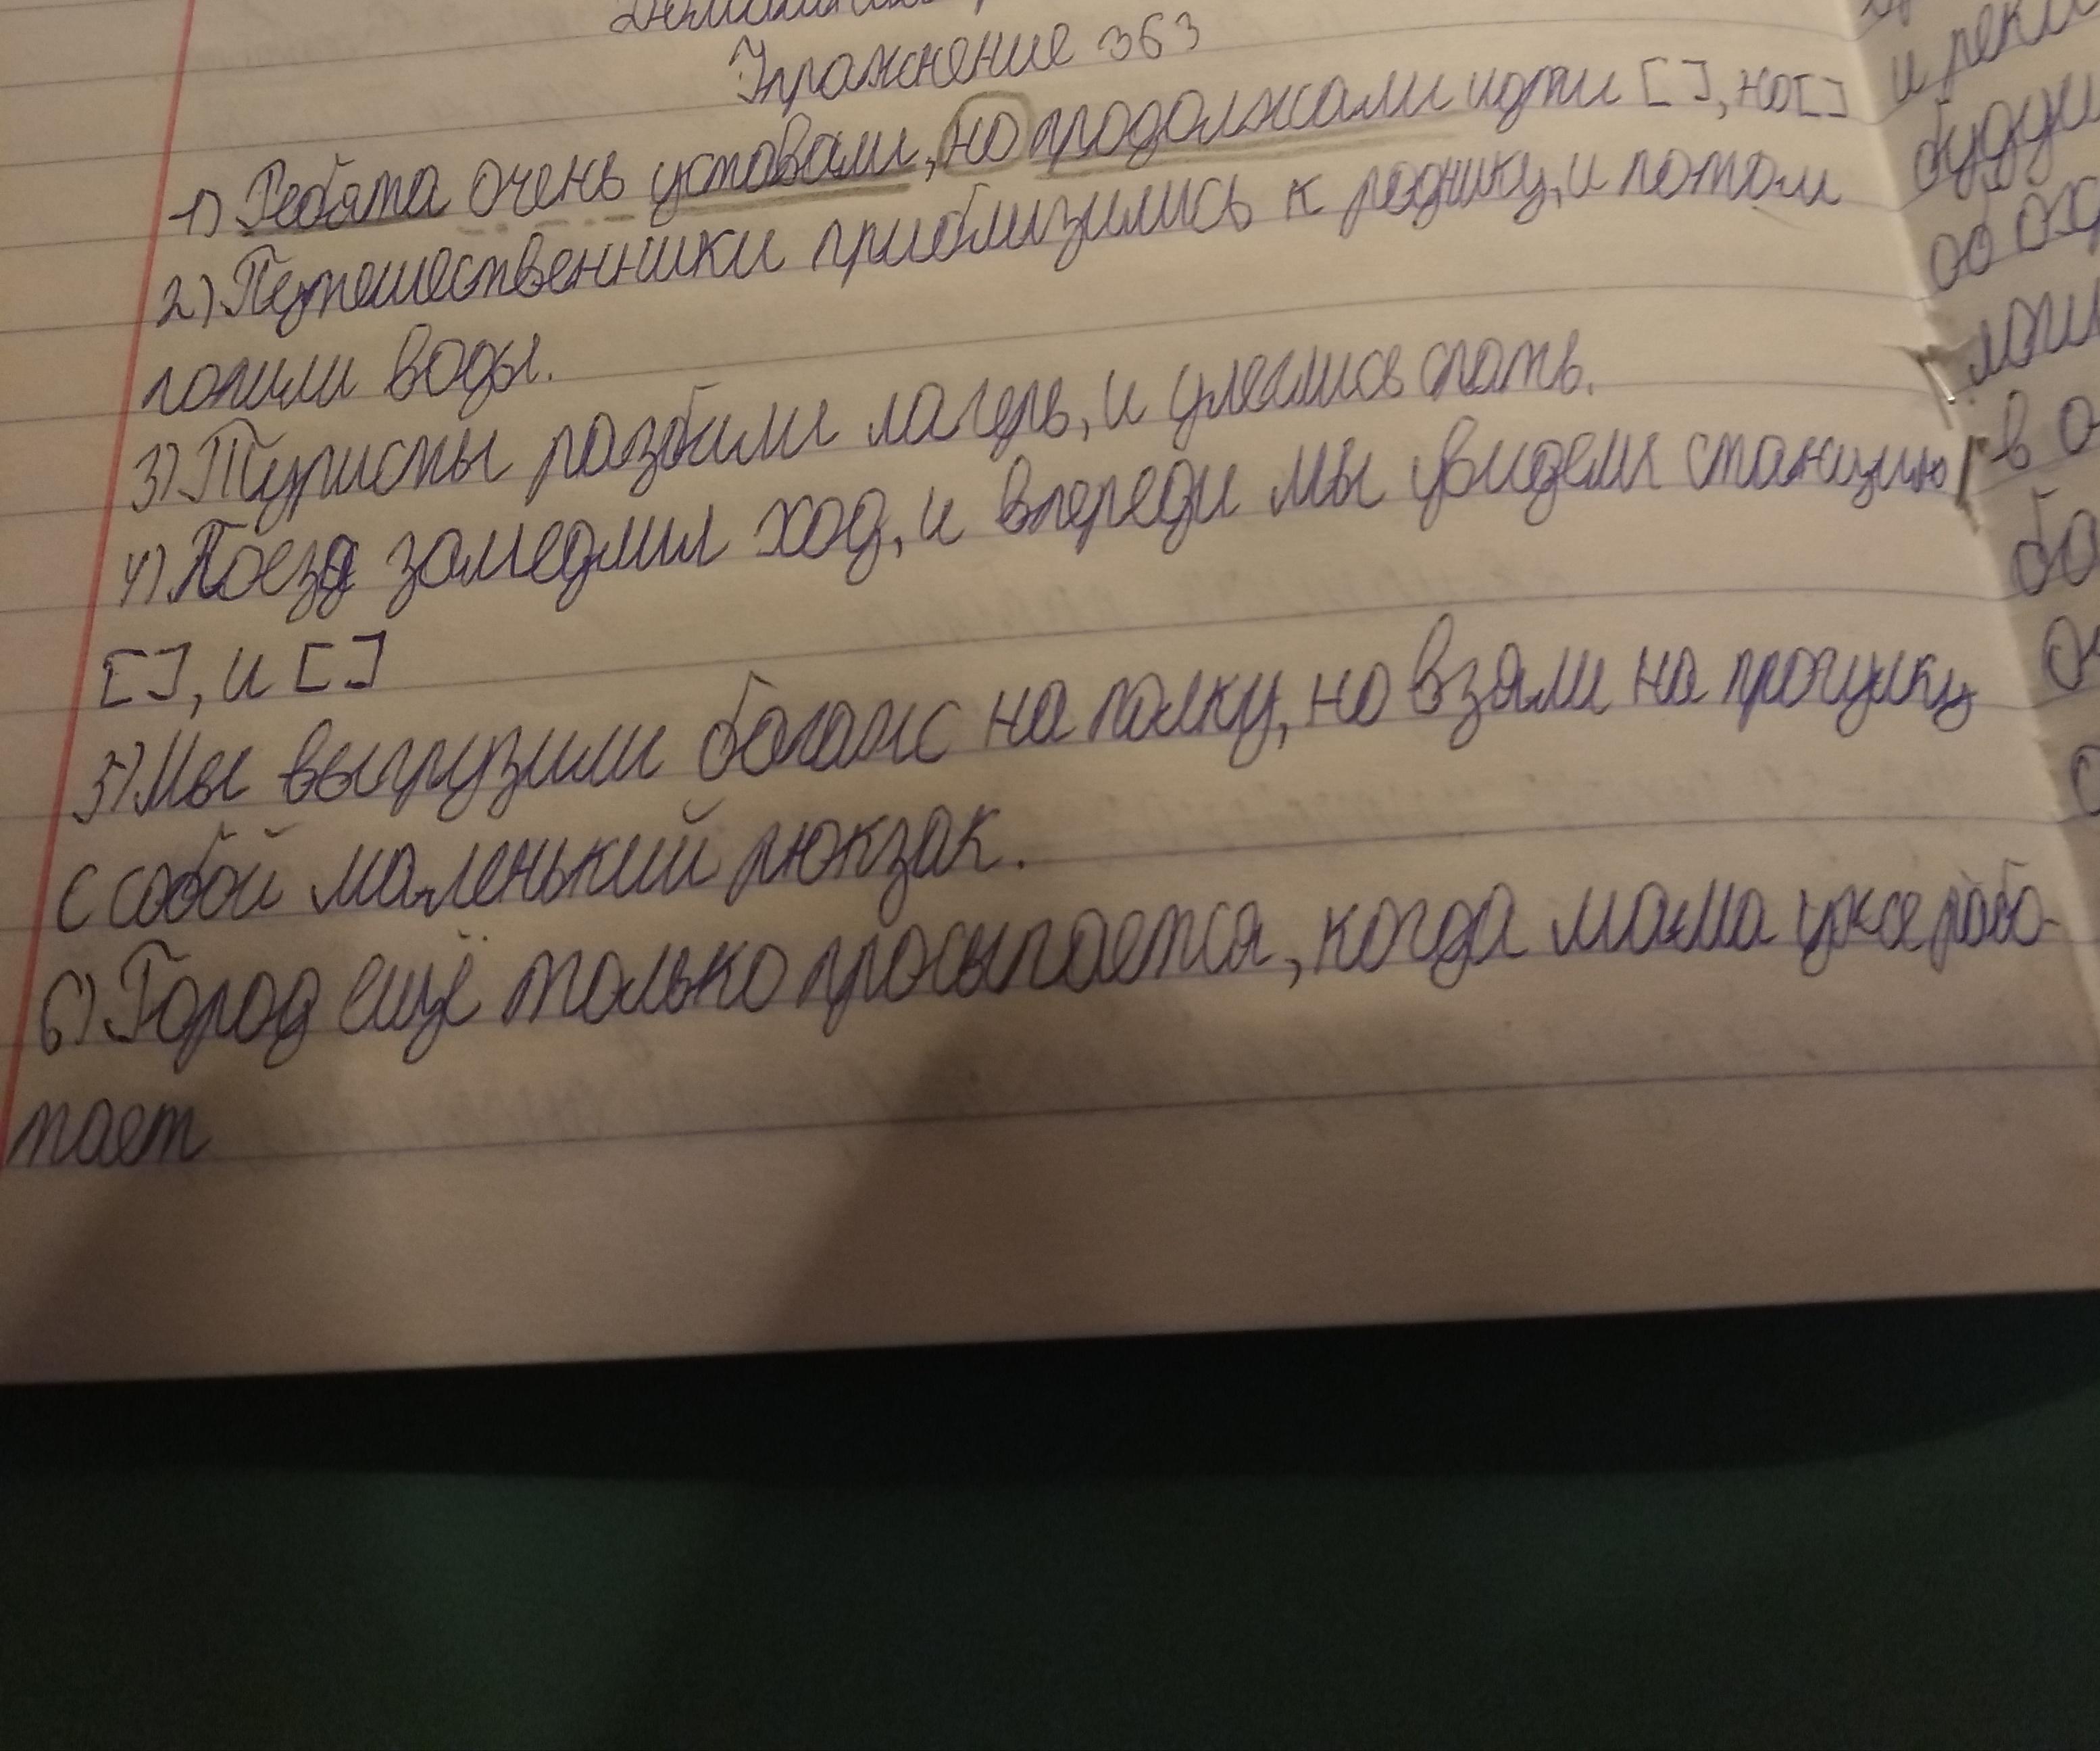 Упражнение 363
1) Ребята очень уставали, но продолжали идти [ ], но [ ]
2) Путешественники приблизились к роднику, и потом
попили воды.
3) Туристы разбили лагерь, и улеглись спать.
4) Поезд замедлил ход, и впереди мы увидели станцию
[ ], и [ ]
5) Мы выгрузили багаж на полку, но взяли на прогулку
с собой маленький рюкзак.
6) Город ещё только просыпается, когда мама уже рабо-
тает